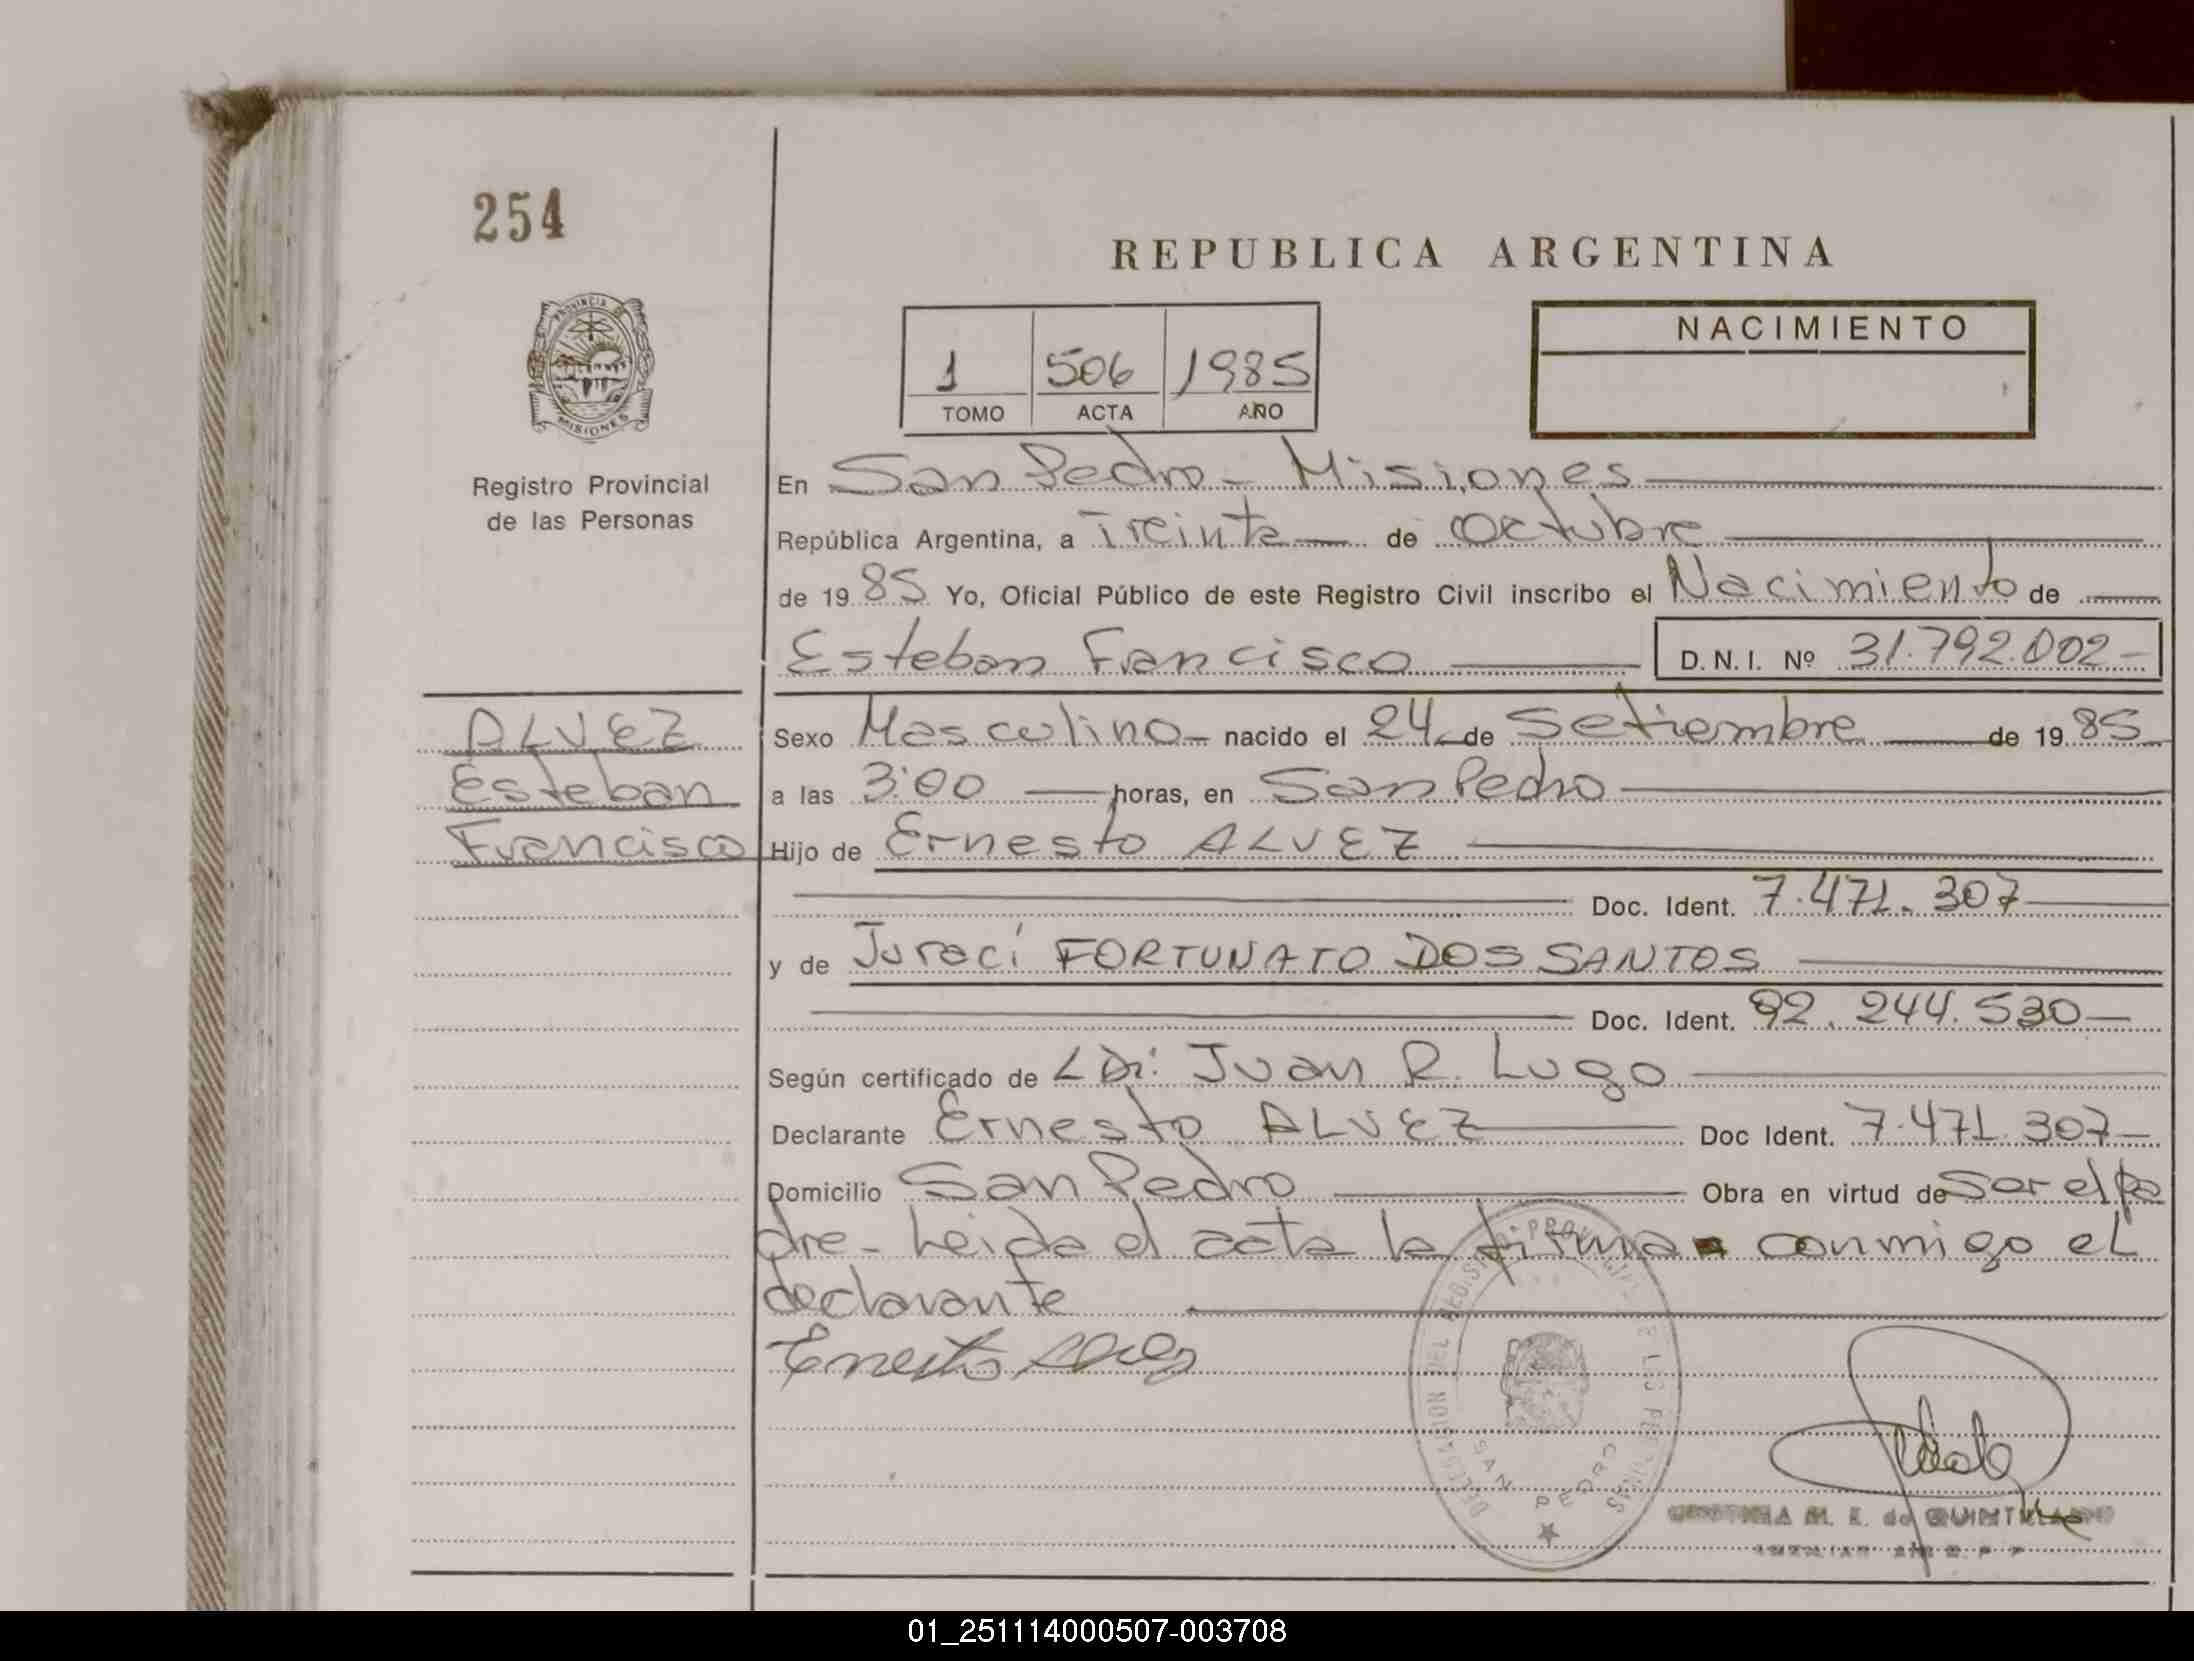 254
REPUBLICA ARGENTINA
PROVINCIA DE
MISIONES
1 506 1985
TOMO ACTA AÑO
NACIMIENTO
Registro Provincial
de las Personas
En San Pedro - Misiones
República Argentina, a Treinta de Octubre
de 1985 Yo, Oficial Público de este Registro Civil inscribo el Nacimiento de
Esteban Francisco D.N.I. Nº 31.792.002-
ALVEZ
Esteban
Francisco
Sexo Masculino - nacido el 24 de Setiembre de 1985
a las 3:00 horas, en San Pedro
Hijo de Ernesto ALVEZ
Doc. Ident. 7.471.307
y de Juraci FORTUNATO DOS SANTOS
Doc. Ident. 92.244.530
Según certificado de Juan R. Lugo
Declarante Ernesto ALVEZ Doc Ident. 7.471.307
Domicilio San Pedro Obra en virtud de Ser el pa
dre - Leida el acta la firma conmigo el
declarante
DELEGACION DEL REGISTRO PROVINCIAL DE LAS PERSONAS
SAN PEDRO
M. E. de QUINTILIANO
01_251114000507-003708